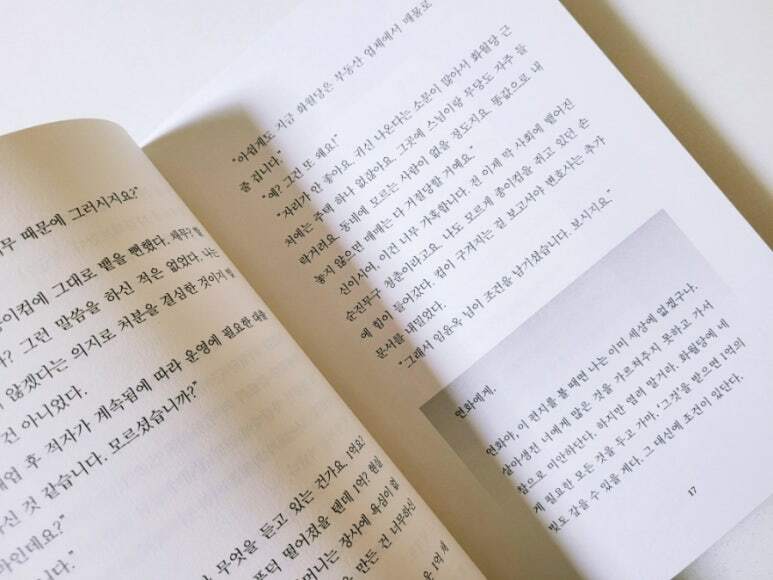 무 때문에 그러시지요?"
이컵에 그대로 뱉을 뻔했다. 채무?
? 그런 말씀을 하신 적은 없었다. 나는
않겠다는 의지로 처분을 결심한 것이기
건 아니었다.
개업 후 적자가 계속됨에 따라 운영에 필요한 대출
신 것 같습니다. 모르셨습니까?"
인데요?"
다."
무엇을 듣고 있는 건가요. 1억요?
떨어졌을 텐데 1억? 현실
머니는 장사에 욕심이 없
만든 건 너무하신
"아쉽게도 지금 화월당은 부동산 업체에서 매물로
줄 겁니다."
"예? 그건 또 왜요?"
"자리가 안 좋아요. 귀신 나온다는 소문이 많아서 화월당 근
처에는 주택 하나 없잖아요. 그곳에 스님이랑 무당도 자주 들
락거려요. 동네에 모르는 사람이 없을 정도지요. 똥값으로 내
놓지 않으면 매매는 다 거절당할 거예요."
신이시여, 이건 너무 가혹합니다. 전 이제 막 사회에 떨어진
순진무구 청춘이라고요. 나도 모르게 종이컵을 쥐고 있던 손
에 힘이 들어갔다. 컵이 구겨지는 걸 보고서야 변호사는 추가
문서를 내밀었다.
"그래서 임윤옥 님이 조건을 남기셨습니다. 보시지요."
연화에게.
연화야, 이 편지를 볼 때면 나는 이미 세상에 없겠구나.
살아생전 너에게 많은 것을 가르쳐주지 못하고 가서
참으로 미안하단다. 하지만 염려 말거라. 화월당에 네
게 필요한 모든 것을 두고 가마. 그것을 받으면 1억의
빚도 갚을 수 있을 게다. 그 대신에 조건이 있단다.
17